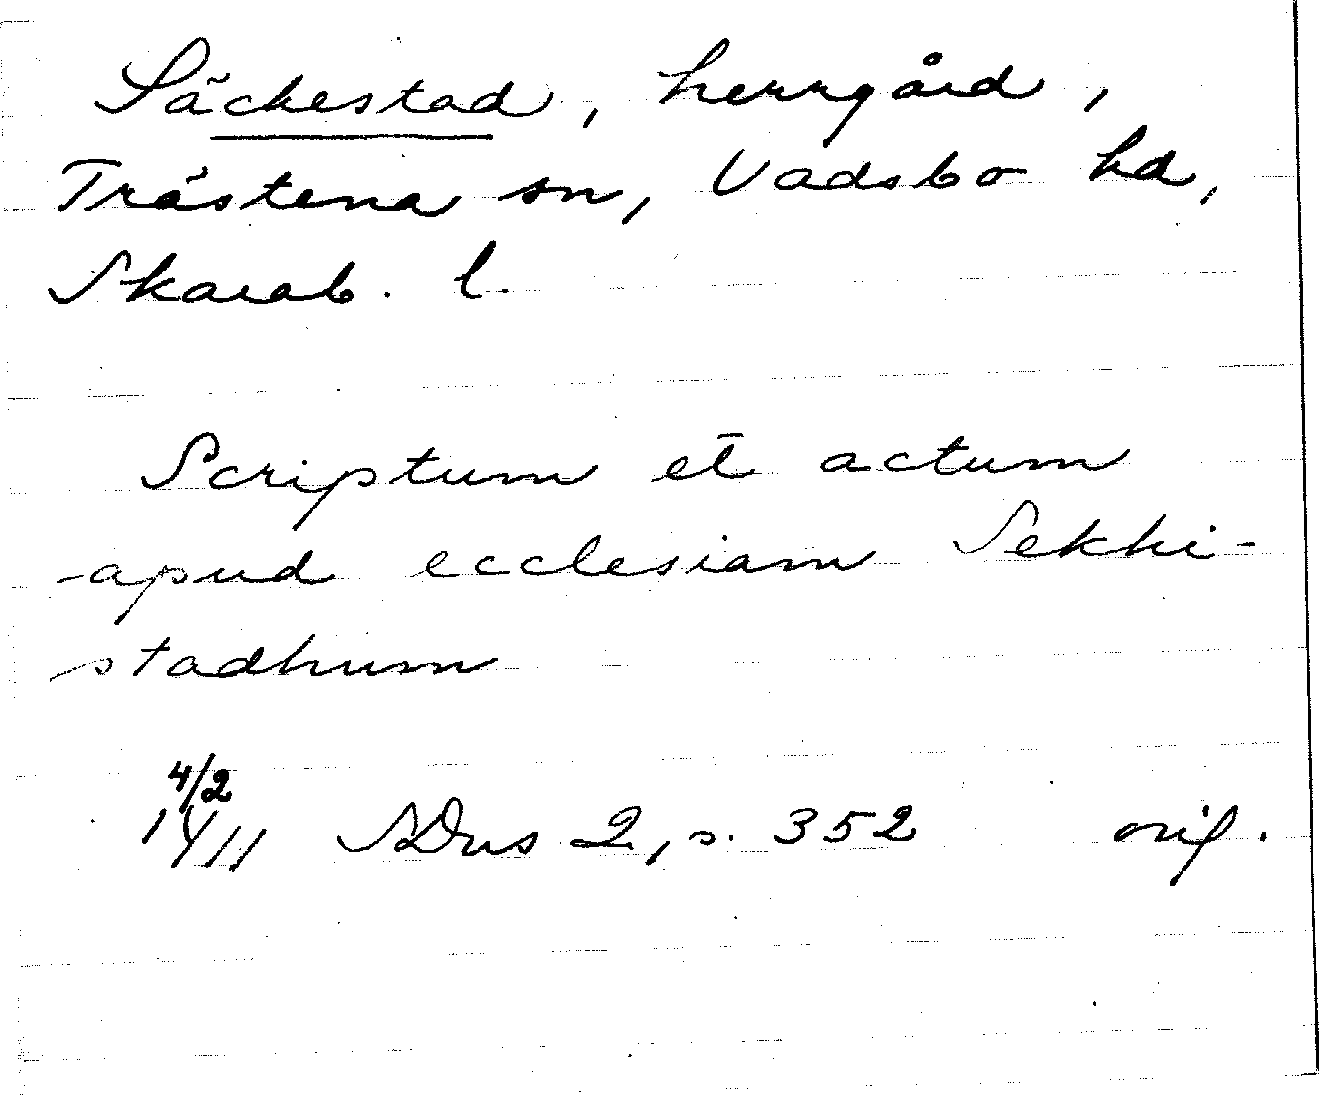 Säckestad, herrgård,
Trästena sn, Vadsbo hd,
Skarab. l.
Scriptum et actum
apud ecclesiam Sekki-
stadhum
4/2
1411 SDns 2, s. 352 orig.